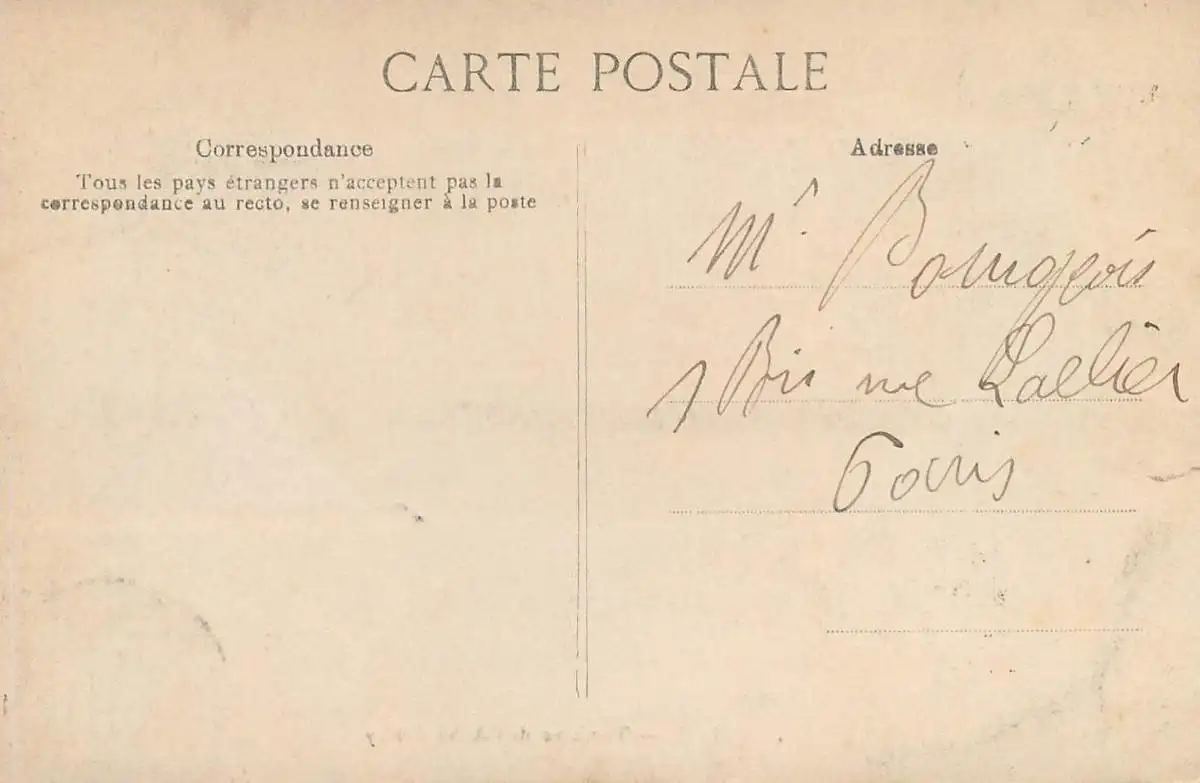 CARTE POSTALE
Correspondance
Tous les pays étrangers n'acceptent pas la
correspondance au recto, se renseigner à la poste
Adresse
Mr Bourgeois
1 Bis rue Lallier
Paris